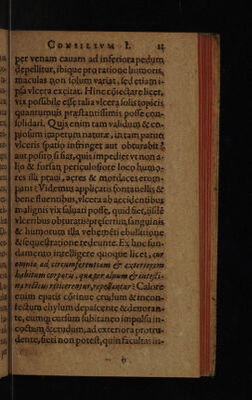 CONSILIVM I.
per venam cauam ad inferiora pedum
depellitur, ibique pro ratione humoris,
maculas non solum variat, sed etiam i-
psa vlcera excitat. Hinc coniectare licet,
vix possibile esse talia vlcera solis topicis
quantumuis præstantissimis posse con-
solidari. Quis enim tam validum & co-
piosum imperum naturæ, in tam patuis
vlceris spatio infringet aut obturabit?
aut posito si fiat, quis impediet vt non a-
lio & forsan periculosiore loco humo-
res illi praui, acres & mordaces erum-
pant? Videmus applicatis fontanellis &
bene fluentibus, vlcera ab accidentibus
malignis vix saluari posse, quid fiet, inde
vlceribus obturatis præsertim, sanguinis
& humorum illa vehementi ebullitione
& sequestratione redeunte. Ex hoc fun-
damento intelligere quoque licet, cur
omnia ad circumferentiam & exteriorem
habitum corporis, quæ per aluum & intesti-
na rectius eijicerentur, repellantur? Calore
enim epatis continue crudum & incon-
tectum chylum depascente & deuorante,
eumque cursum subitaneo impulsu in-
coctum & crudum, ad exteriora protru-
dente, fieri non potest, quin facultas in-